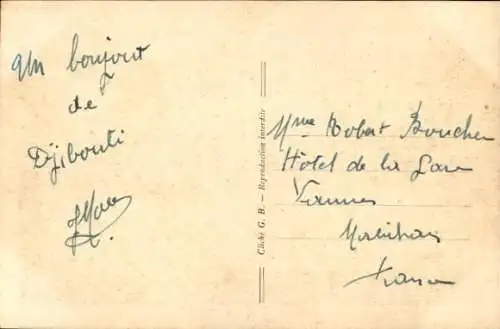 Un bonjour
de
Djibouti
Cliché G. B. — Reproduction interdite
Mme Robert Boucher
Hôtel de la Gare
Vannes
Morbihan
France